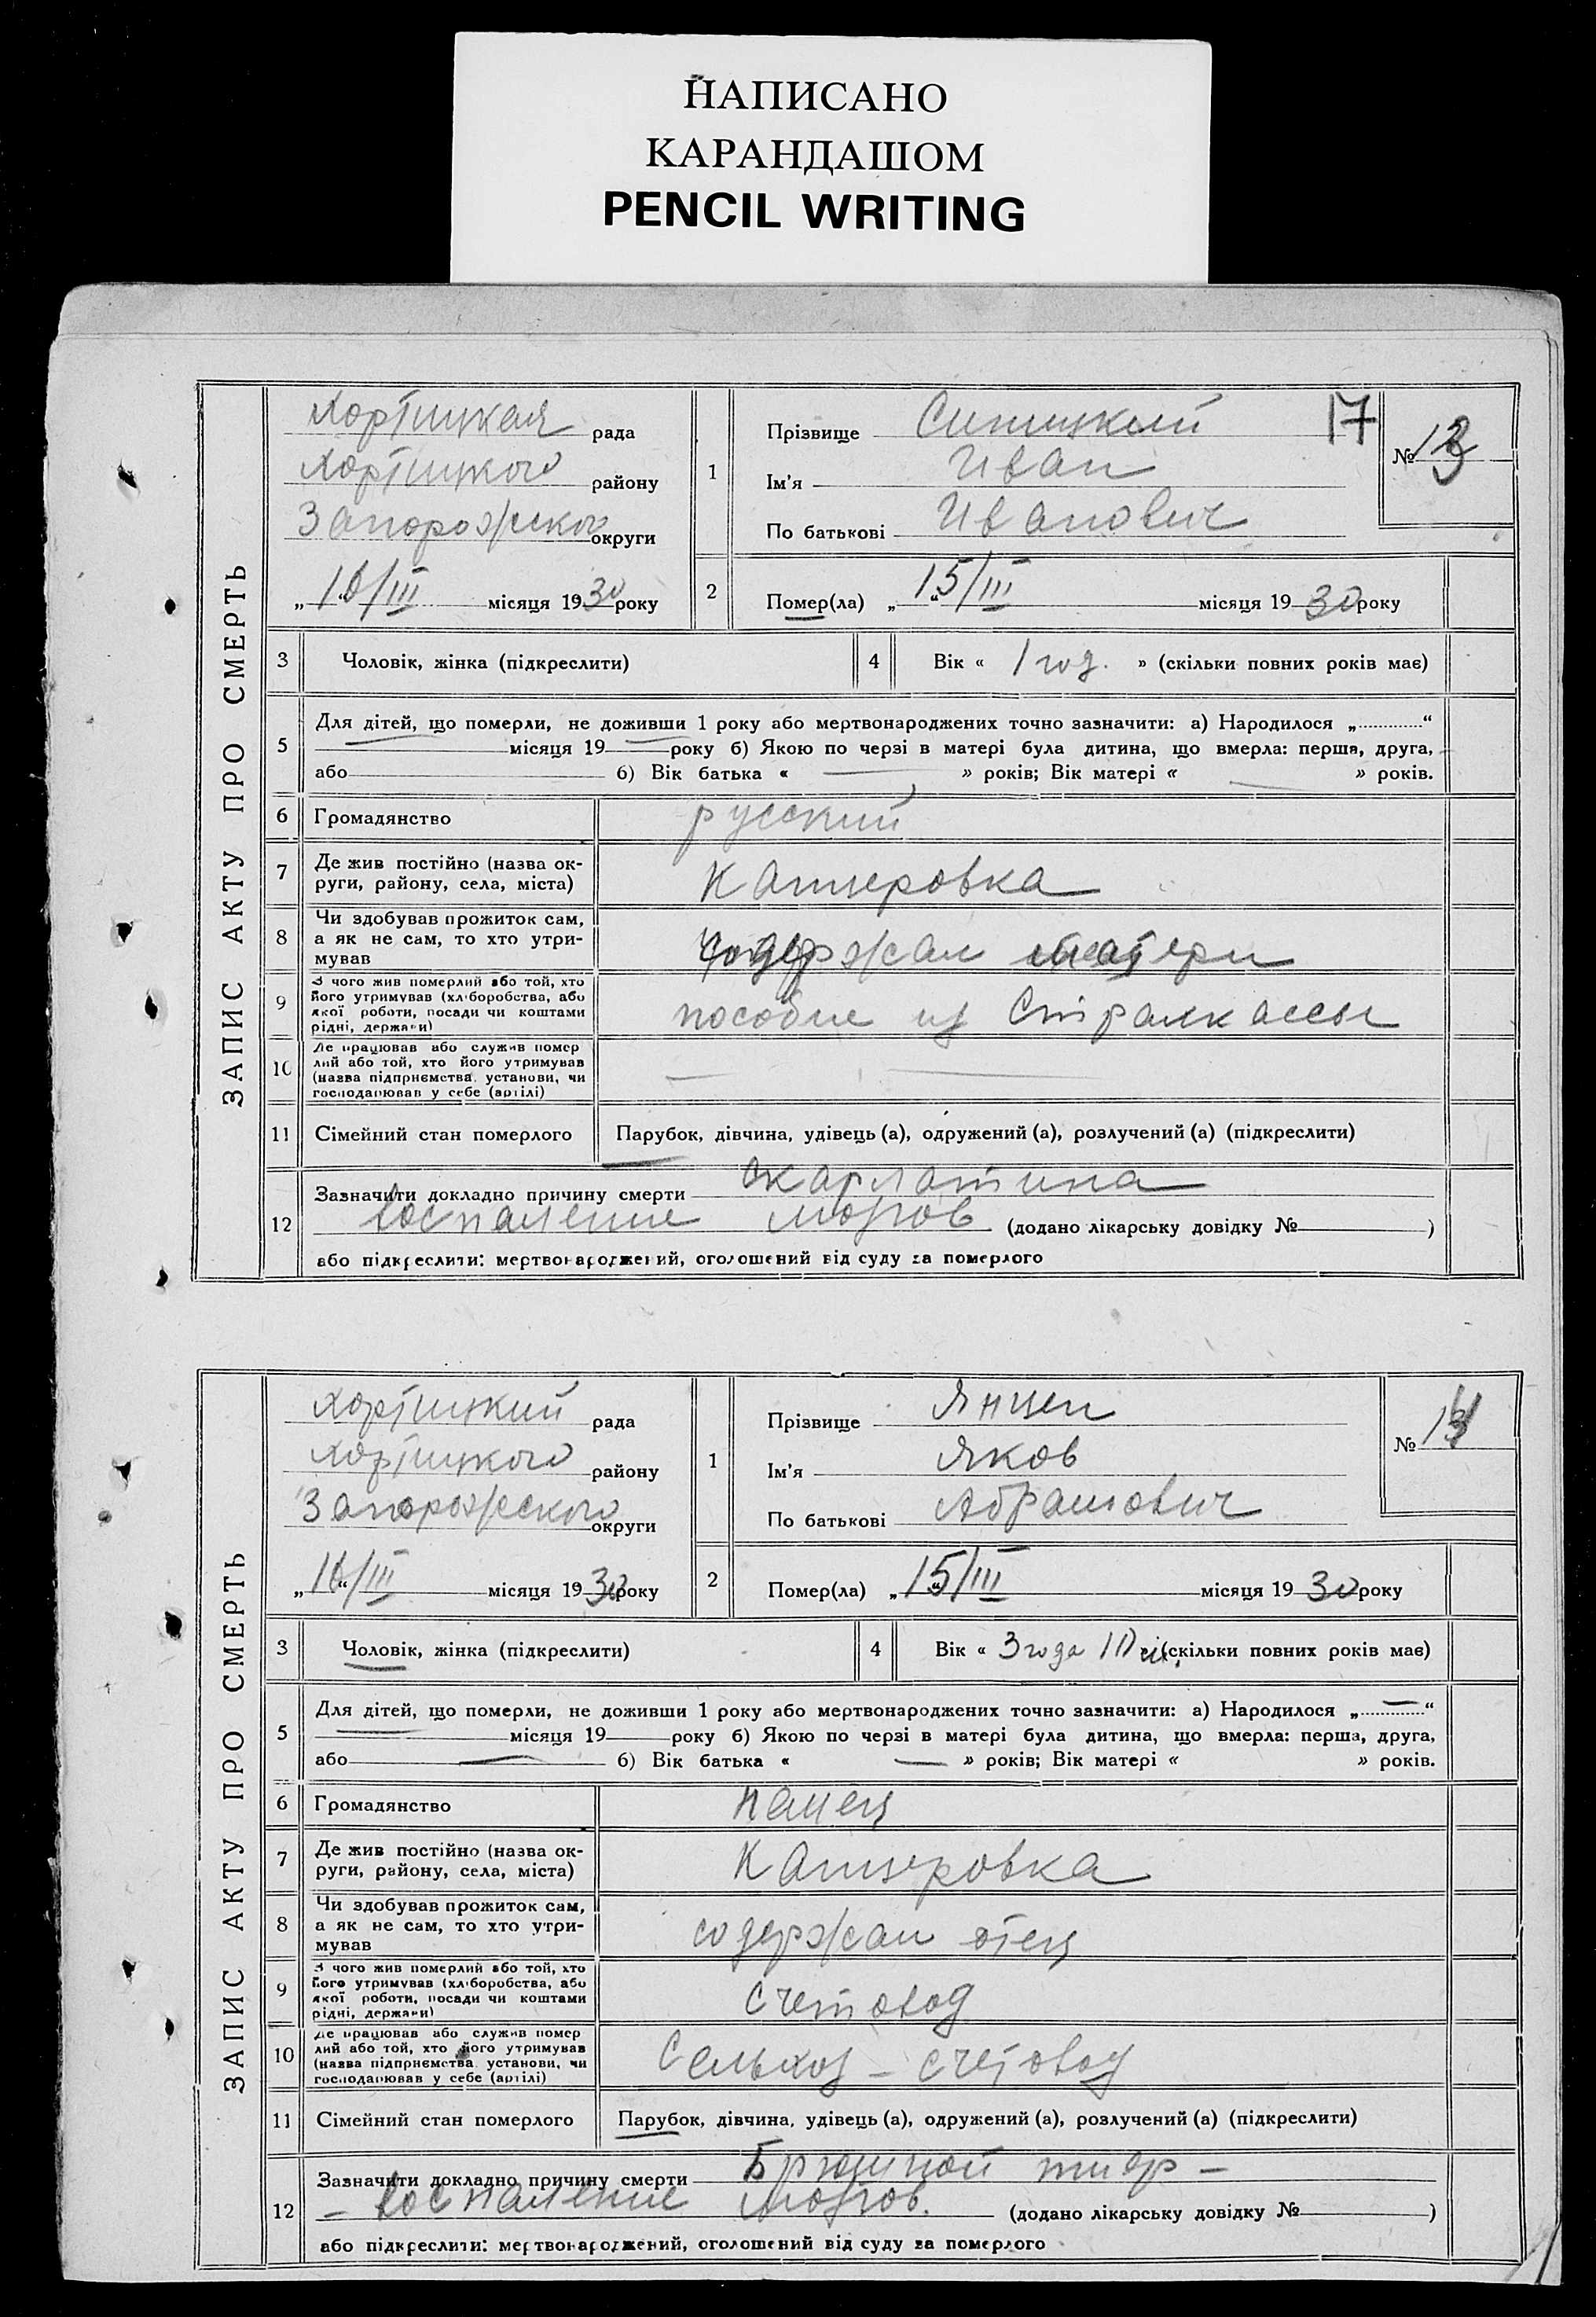 НАПИСАНО
КАРАНДАШОМ
PENCIL WRITING
ЗАПИС АКТУ ПРО СМЕРТЬ
Хортицкая рада
Хортицкого району
Запорожского округи
„16/III місяця 1930 року
1
Прізвище Синицкий
17
Ім'я Иван
По батькові Иванович
№ 13
2
Помер(ла) „15/III місяця 1930 року
3 Чоловік, жінка (підкреслити)
4 Вік « 1 год. » (скільки повних років має)
5 Для дітей, що померли, не доживши 1 року або мертвонароджених точно зазначити: а) Народилося „ “
місяця 19 року б) Якою по черзі в матері була дитина, що вмерла: перша, друга,
або б) Вік батька « » років; Вік матері « » років.
6 Громадянство русский
7 Де жив постійно (назва ок-
руги, району, села, міста) Канцеровка
8 Чи здобував прожиток сам,
а як не сам, то хто утри-
мував содержал матери
9 З чого жив померлий або той, хто
його утримував (хліборобства, або
якої роботи, посади чи коштами
рідні, держави) пособие из Страхкассы
10 Де працював або служив помер
лий або той, хто його утримував
(назва підприємства, установи, чи
господарював у себе (артілі)
11 Сімейний стан померлого Парубок, дівчина, удівець (а), одружений (а), розлучений (а) (підкреслити)
12 Зазначити докладно причину смерти скарлатина
воспаление мозгов (додано лікарську довідку № )
або підкреслити: мертвонароджений, оголошений від суду за померлого
ЗАПИС АКТУ ПРО СМЕРТЬ
Хортицкий рада
Хортицкого району
Запорожского округи
„16“/III місяця 1930 року
1
Прізвище Янцен
Ім'я Яков
По батькові Абрамович
№ 14
2
Помер(ла) „15/III місяця 1930 року
3 Чоловік, жінка (підкреслити)
4 Вік « 3 года (скільки повних років має)
5 Для дітей, що померли, не доживши 1 року або мертвонароджених точно зазначити: а) Народилося „ — “
місяця 19 року б) Якою по черзі в матері була дитина, що вмерла: перша, друга,
або б) Вік батька « — » років; Вік матері « » років.
6 Громадянство немец
7 Де жив постійно (назва ок-
руги, району, села, міста) Канцеровка
8 Чи здобував прожиток сам,
а як не сам, то хто утри-
мував содержал отец
9 З чого жив померлий або той, хто
його утримував (хліборобства, або
якої роботи, посади чи коштами
рідні, держави) счетовод
10 Де працював або служив помер
лий або той, хто його утримував
(назва підприємства, установи, чи
господарював у себе (артілі) Сельхоз – счетовод
11 Сімейний стан померлого Парубок, дівчина, удівець (а), одружений (а), розлучений (а) (підкреслити)
12 Зазначити докладно причину смерти Брюшной тиф –
– воспаление мозгов. (додано лікарську довідку № )
або підкреслити: мертвонароджений, оголошений від суду за померлого